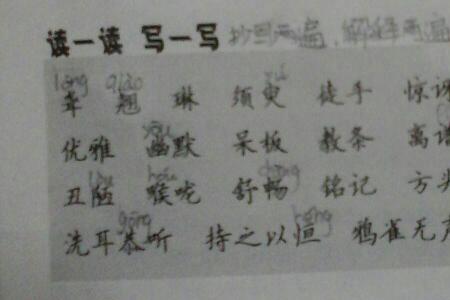 读一读 写一写 抄写两遍,解释两遍
qiáo
翘 琳 须臾 徒手 惊讶
yōu
优雅 幽默 呆板 教条 离谱
lòu hóu chàng
丑陋 喉咙 舒畅 铭记 方头
gōng héng
洗耳恭听 持之以恒 鸦雀无声